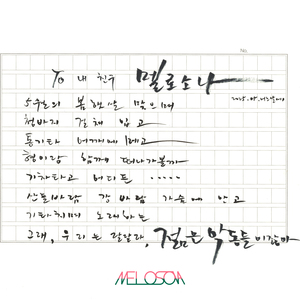 No.
To 내 친구 멜로소나
5월의 봄햇살 맞으며
청바지 걸쳐 입고
통기타 어깨에 메고
형이랑 함께 떠나가볼까
기차타고 버디튼 .....
산들바람 강바람 가슴에 안고
기타치며 노래하는
그래, 우리는 달랐다, 젊은 악동들이잖아
MELOSON